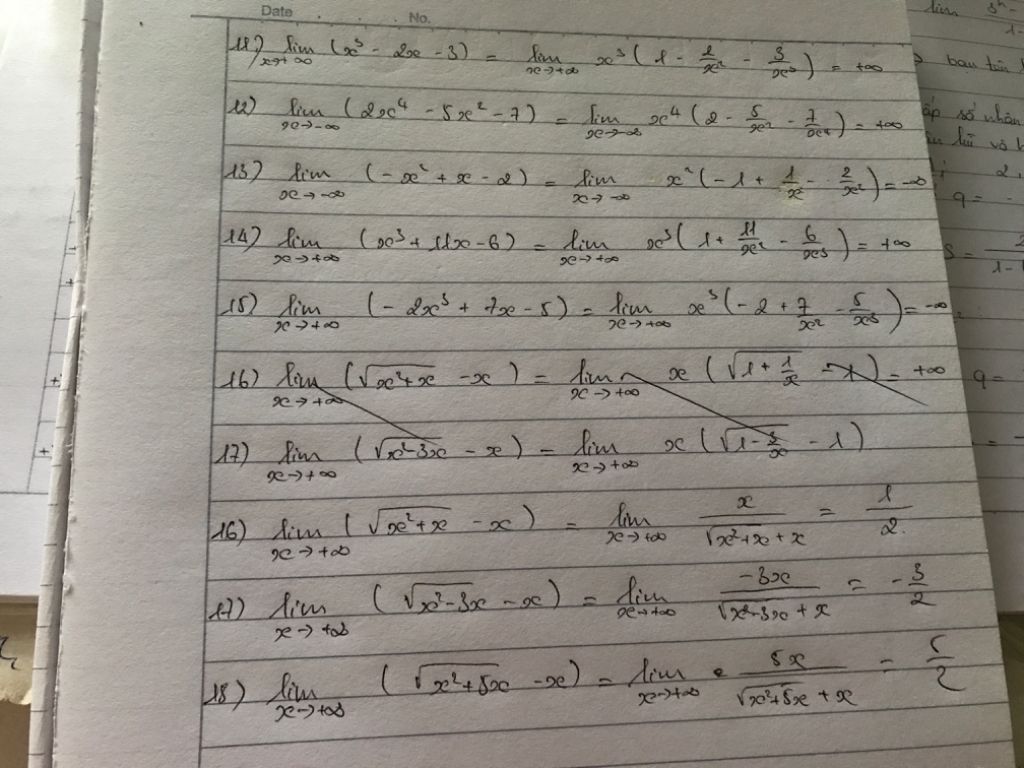 Date . . . No.
11) lim x→+∞ (x³ - 2x - 3) = lim x→+∞ x³ (1 - 2/x² - 3/x³) = +∞
12) lim x→-∞ (2x⁴ - 5x² - 7) = lim x→-∞ x⁴ (2 - 5/x² - 7/x⁴) = +∞
13) lim x→-∞ (-x² + x - 2) = lim x→-∞ x² (-1 + 1/x - 2/x²) = -∞
14) lim x→+∞ (x³ + 11x - 6) = lim x→+∞ x³ (1 + 11/x² - 6/x³) = +∞
15) lim x→+∞ (-2x³ + 7x - 5) = lim x→+∞ x³ (-2 + 7/x² - 5/x³) = -∞
16) lim x→+∞ (√(x²+x) - x) = lim x→+∞ x (√(1 + 1/x) - 1) = +∞
17) lim x→+∞ (√(x²-3x) - x) = lim x→+∞ x (√(1 - 3/x) - 1)
16) lim x→+∞ (√(x²+x) - x) = lim x→+∞ x/(√(x²+x) + x) = 1/2
17) lim x→+∞ (√(x²-3x) - x) = lim x→+∞ -3x/(√(x²-3x) + x) = -3/2
18) lim x→+∞ (√(x²+5x) - x) = lim x→+∞ 5x/(√(x²+5x) + x) = 5/2
lim
bạn
số nhân
lũi và
2,
q = -
S =
q =